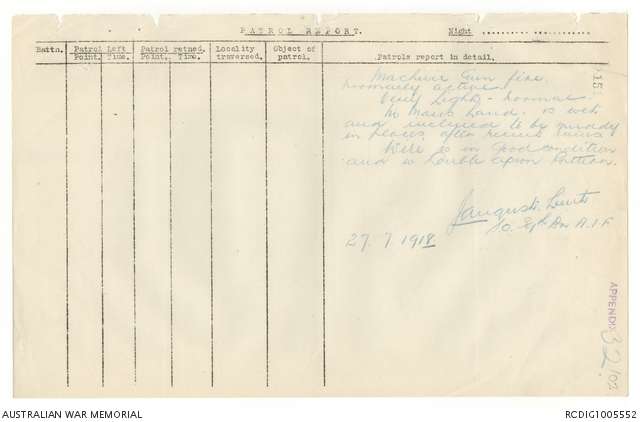 PATROL REPORT.
Night
Battn.
Patrol Left
Point. Time.
Patrol retned.
Point. Time.
Locality
traversed.
Object of
patrol.
Patrols report in detail.
Machine Gun fire
normally active
Very Lights - normal
No Mans Land is wet
and inclined to be muddy
in places after recent rains
Wire is in Good condition
and is double apron pattern.
Lieut
IO. Div A.I.F
27.7.1918
15
APPENDIX 32/02
AUSTRALIAN WAR MEMORIAL
RCDIG1005552